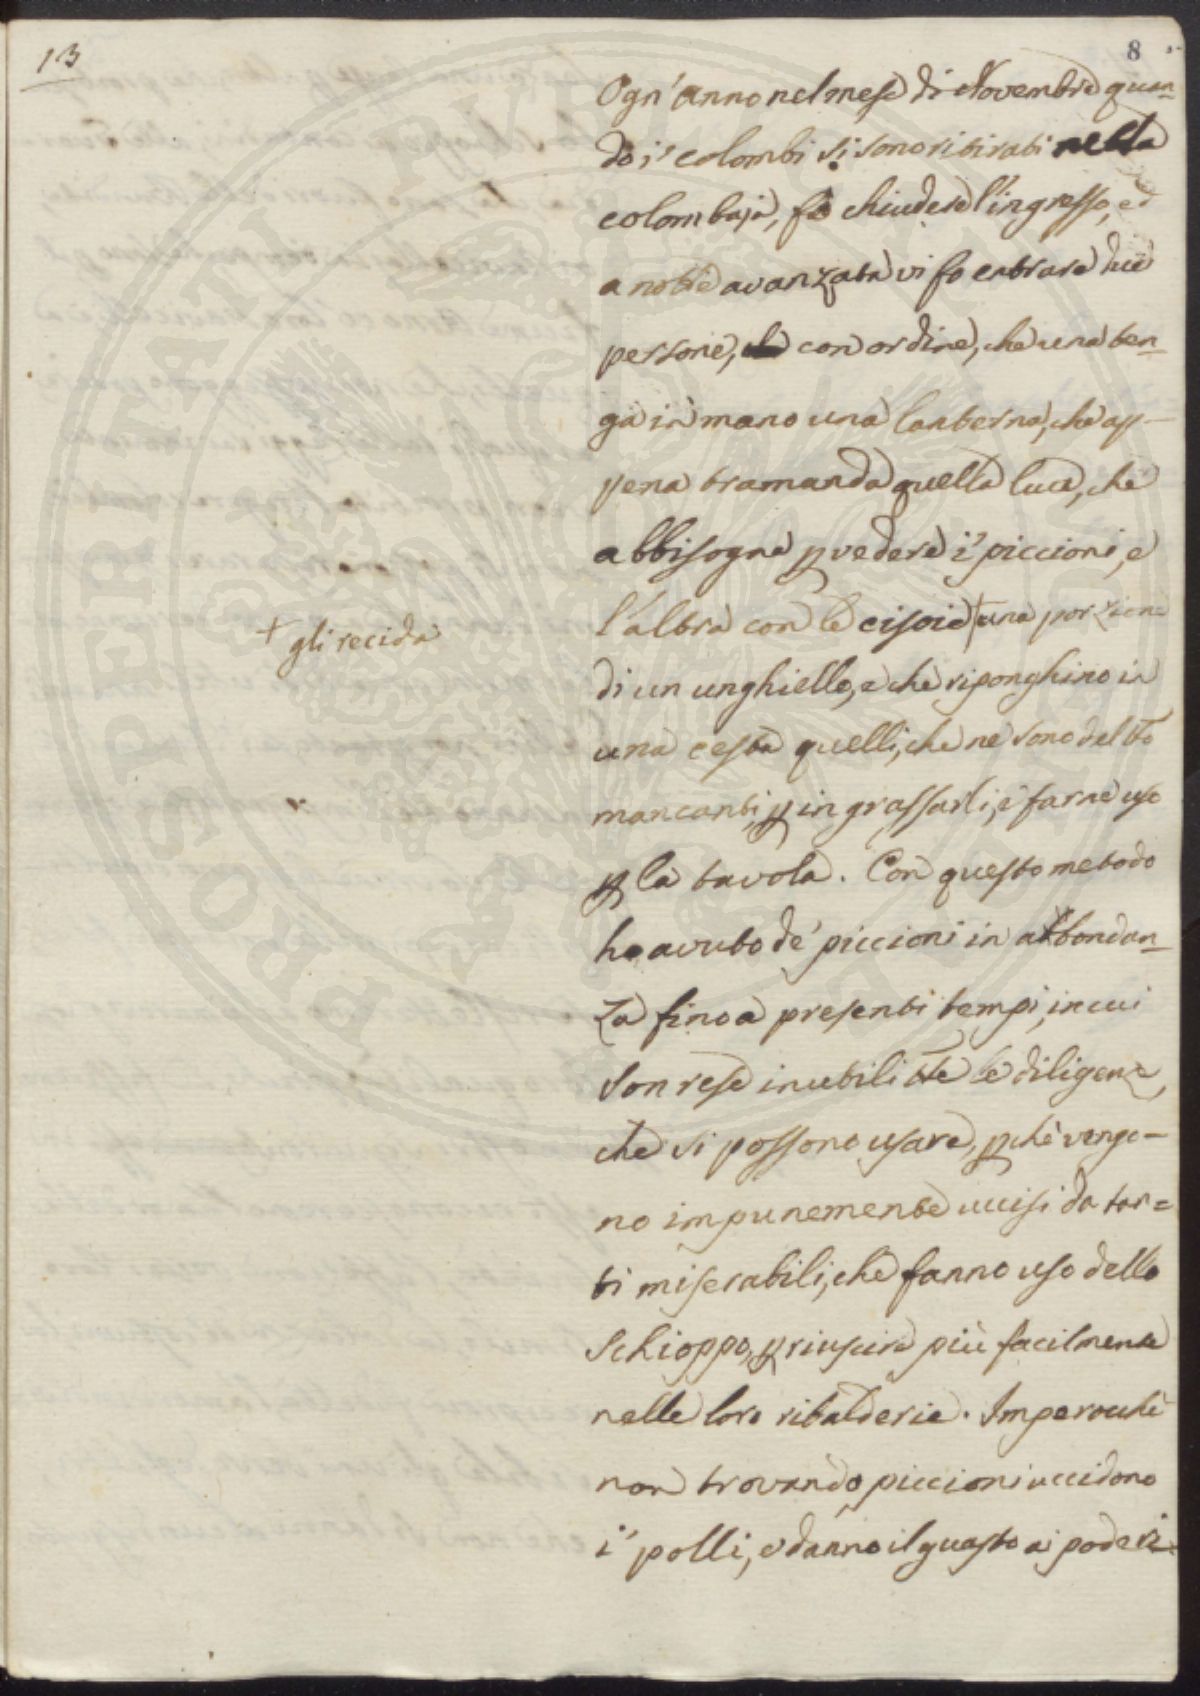 13
8
Ogn' anno nel mese di Novembre quan-
do i' colombi si sono ritirati nella
colombaja, fo chiudere l'ingresso, ed
a notte avanzata vi fo entrare due
persone, con ordine, che una ten-
ga in mano una lanterna, che ap-
pena tramanda quella luce, che
abbisogna p vedere i' piccioni, e
l'altra con le cisoie + una porzione
+ gli recida
di un unghiello, e che riponghino in
una cesta quelli, che ne sono del tto
mancanti, p ingrassarli, e' farne uso
p la tavola. Con questo metodo
ho avuto de' piccioni in abbondan-
za fino a presenti tempi, in cui
son rese inutili tte le diligenze,
che si possono usare, pchè vengo-
no impunemente uccisi da tan=
ti miserabili, che fanno uso dello
Schioppo, p riuscire più facilmente
nelle loro ribalderie. Imperocchè
non trovando piccioni uccidono
i' polli, e danno il guasto ai poderi.
PROSPERITATI PVBLICAE